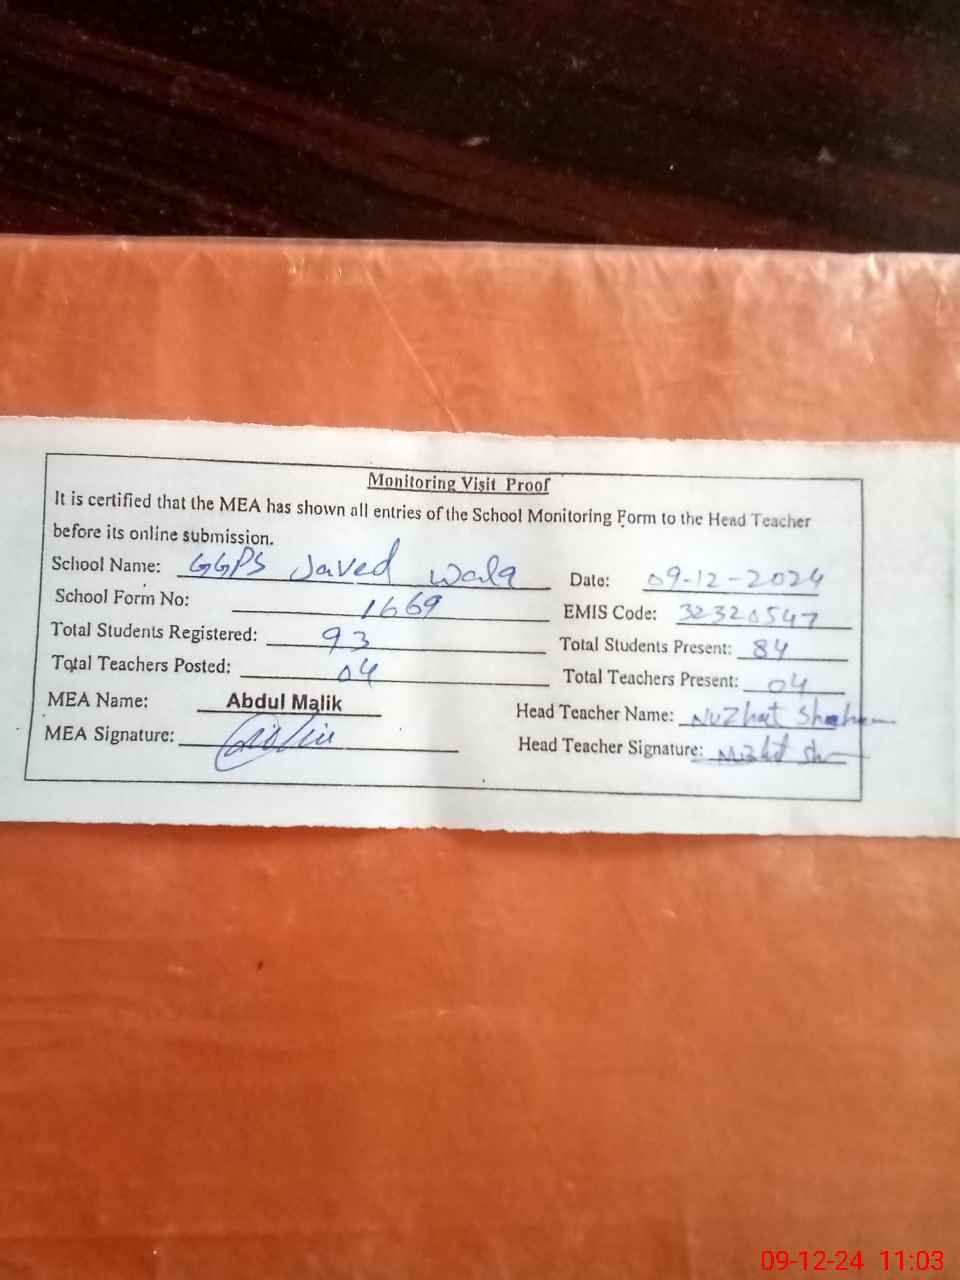 Monitoring Visit Proof
It is certified that the MEA has shown all entries of the School Monitoring Form to the Head Teacher
before its online submission.
School Name: GGPS Javed wala Date: 09-12-2024
School Form No: 1669 EMIS Code: 32320547
Total Students Registered: 93 Total Students Present: 84
Total Teachers Posted: 04 Total Teachers Present: 04
MEA Name: Abdul Malik Head Teacher Name: Nuzhat
MEA Signature: Head Teacher Signature:
09-12-24 11:03